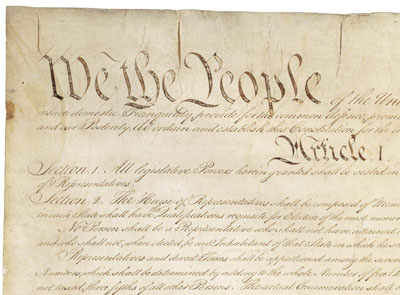 We the People of the Uni
insure domestic Tranquility, provide for the common defence, promo
and our Posterity, do ordain and establish this Constitution for the U
Article. I.
Section. 1. All legislative Powers herein granted shall be vested in
of Representatives.
Section. 2. The House of Representatives shall be composed of Mem
in each State shall have Qualifications requisite for Electors of the most numer
No Person shall be a Representative who shall not have attained
and who shall not, when elected, be an Inhabitant of that State in which he sh
Representatives and direct Taxes shall be apportioned among the severa
Numbers, which shall be determined by adding to the whole Number of free
not taxed, three fifths of all other Persons. The actual Enumeration shall